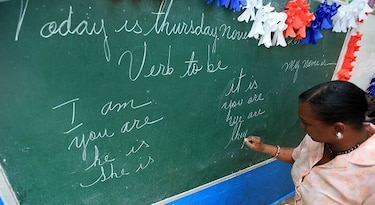 Today is thursday nov
Verb to be
My name is
I am
you are
he is
she is
it is
you are
we are
they